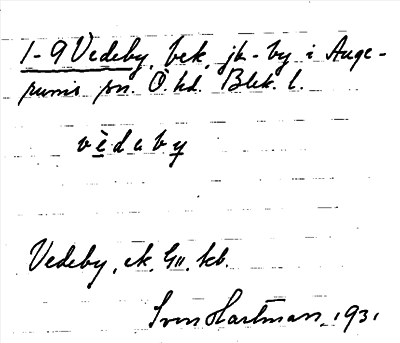 1-9 Vedeby, bek. jb-by i Auge-
rums sn. Ö. hd. Blek. l.
vèdaby
Vedeby, ek. GII, kb.
Sven Hartman, 1931